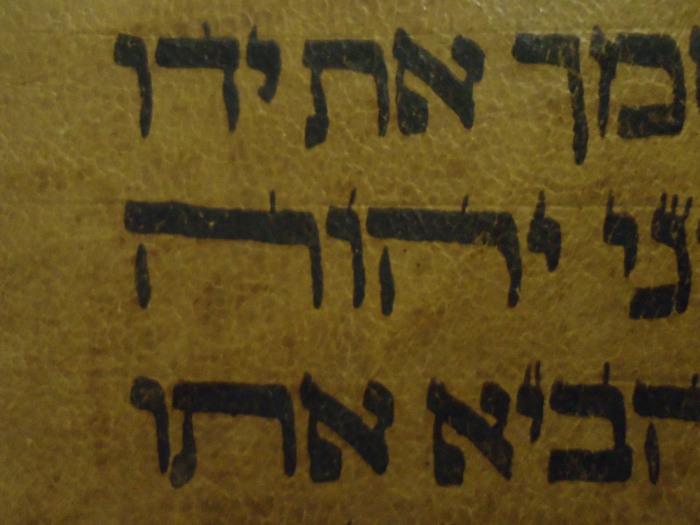 מך את ידו
ני יהוה
הביא אתו